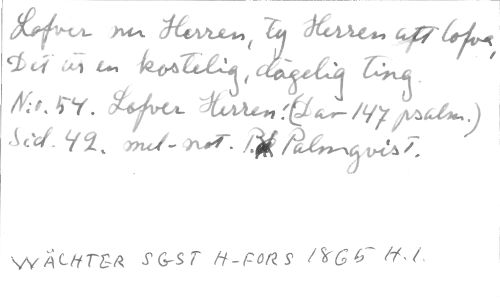 Lofver nu Herren, ty Herren att lofva,
Det är en kostelig, dägelig ting.
N:o. 54. Lofver Herren! (Dav 147 psalm.)
Sid. 42. mel-not. P. Palmqvist.
WÄCHTER SGST H-FORS 1865 H.1.